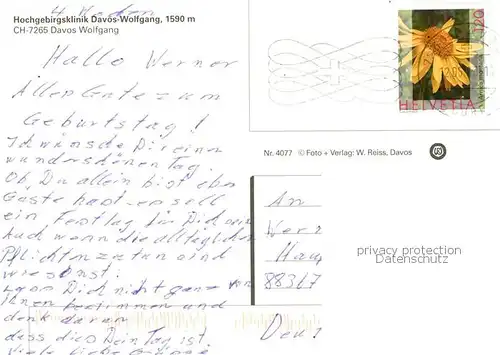 4 Hoden
Hochgebirgsklinik Davos-Wolfgang, 1590 m
CH-7265 Davos Wolfgang
Hallo Werner
Alles Gute zum
Geburtstag!
Ich wünsche Dir einen
wunderschönen Tag.
Ob Du allein bist oder
Gäste hast er soll
ein Festtag für Dich sein
Auch wenn die alltäglichen
Pflichten zu tun sind
wie sonst.
Lass Dich nicht ganz von
ihnen bestimmen und
denk daran
dass dies Dein Tag ist.
Viele liebe Grüsse
120
HELVETIA
Nr. 4077 © Foto + Verlag: W. Reiss, Davos
An
Wern
Hau
88367
Deu
privacy protection
Datenschutz